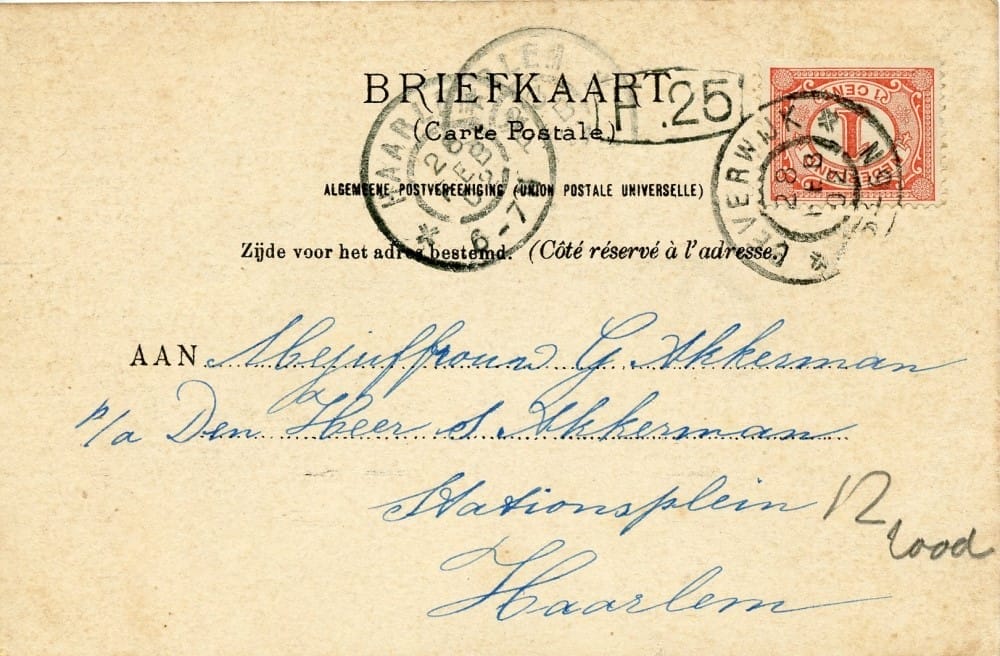 BRIEFKAART
(Carte Postale)
ALGEMEENE POSTVEREENIGING (UNION POSTALE UNIVERSELLE)
Zijde voor het adres bestemd. (Côté réservé à l'adresse.)
H.25
1 CENT
1
HAARLEM
28 FEB
6-7
BEVERWIJK
28 FEB 02
AAN Mejuffrouw G Akkerman
p/a Den Heer S Akkerman
Stationsplein
12
rood
Haarlem